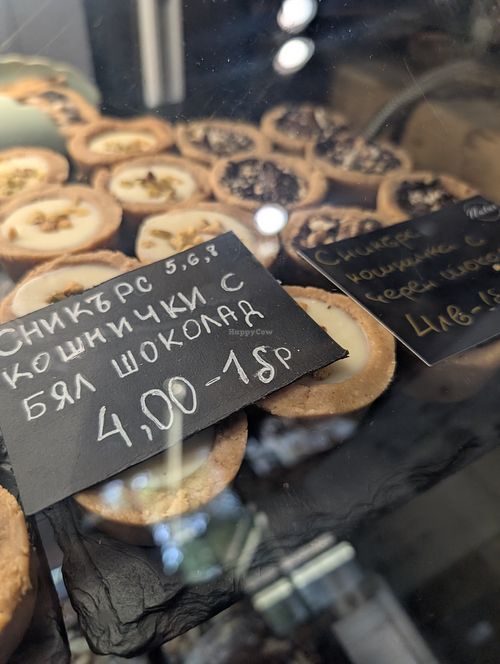 Сникърс 5,6,8
кошнички с
бял шоколад
4,00-1бр
Сникърс
кошнички с
черен шоко
4лв-1
HappyCow